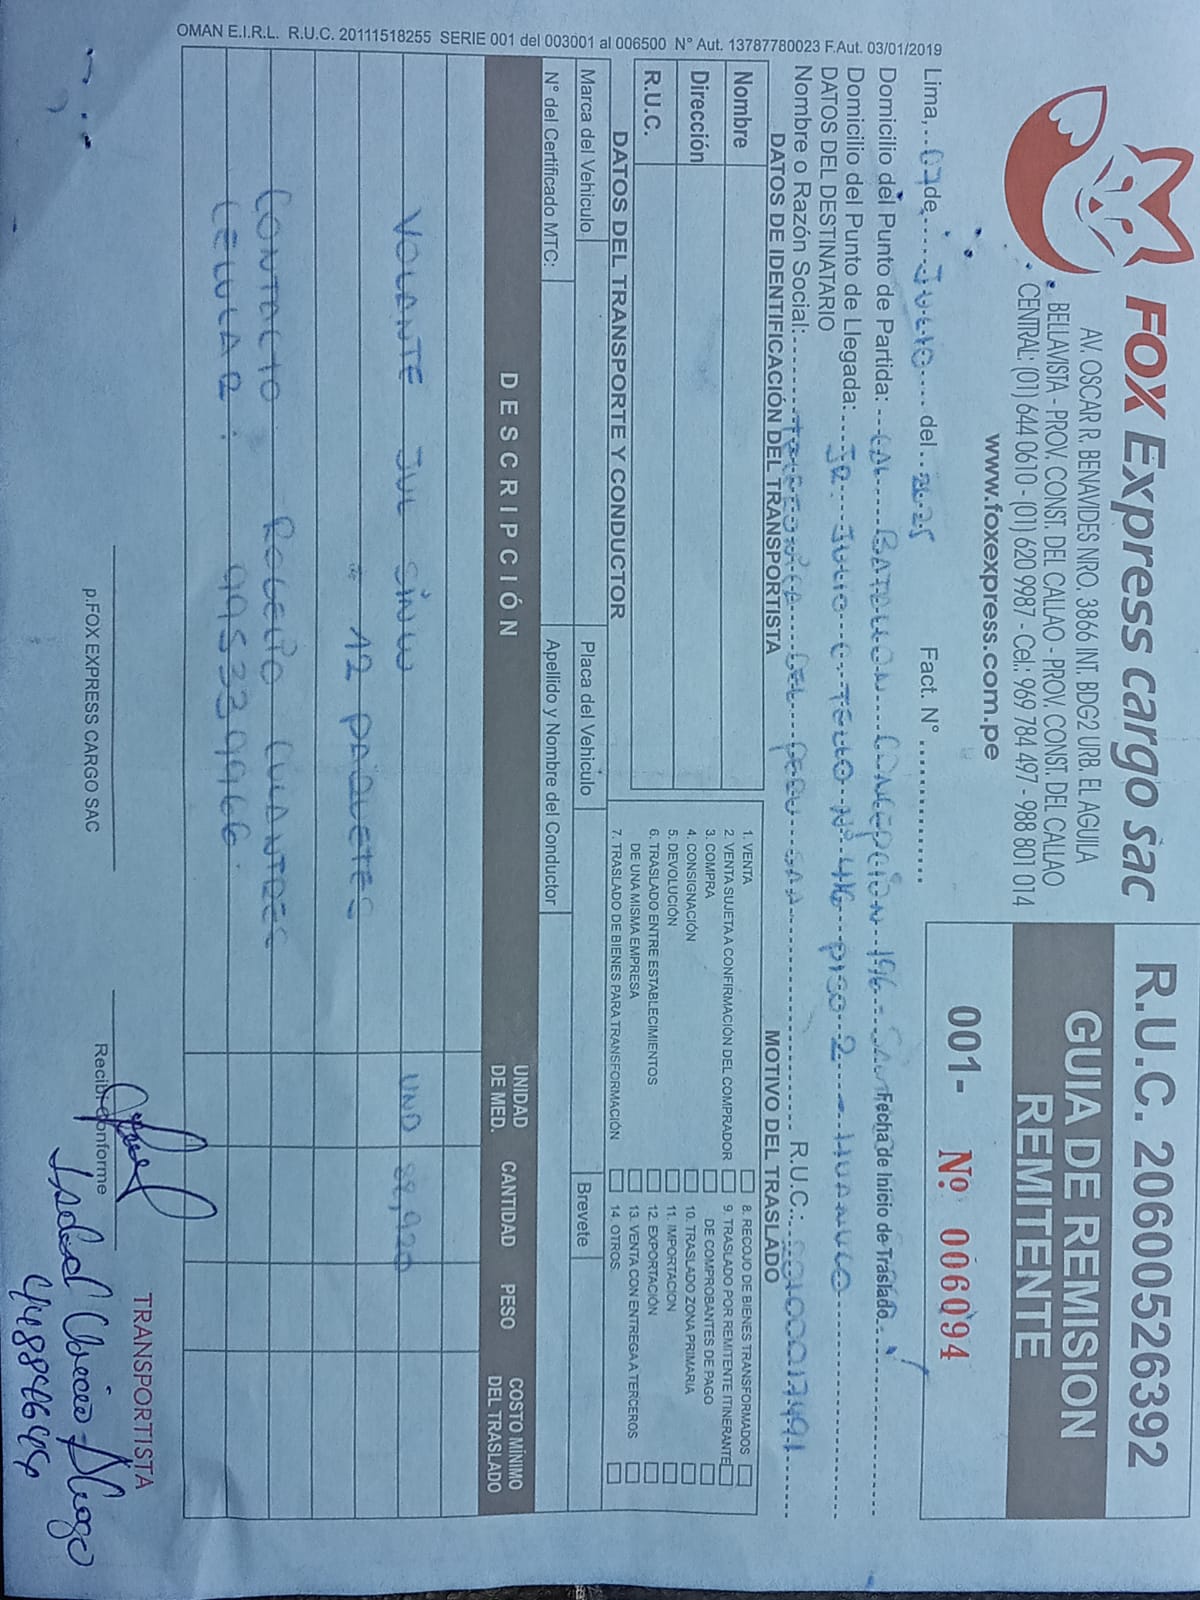 FOX Express cargo sac
AV. OSCAR R. BENAVIDES NRO. 3866 INT. BDG2 URB. EL AGUILA
BELLAVISTA - PROV. CONST. DEL CALLAO - PROV. CONST. DEL CALLAO
CENTRAL: (01) 644 0610 - (01) 620 9987 - Cel.: 969 784 497 - 988 801 014
www.foxexpress.com.pe
R.U.C. 20600526392
GUIA DE REMISION
REMITENTE
001- Nº 006094
Lima, 07 de Julio del 2025 Fact. N°
Domicilio del Punto de Partida: CAL BATALLON CONCEPCIÓN 196 Fecha de Inicio de Traslado
Domicilio del Punto de Llegada: JR. JULIO C. TELLO Nº 416 PISO 2 - HUANUCO
DATOS DEL DESTINATARIO
Nombre o Razón Social: TELEFONICA DEL PERU SAA R.U.C.: 20100017491
DATOS DE IDENTIFICACIÓN DEL TRANSPORTISTA
Nombre
Dirección
R.U.C.
MOTIVO DEL TRASLADO
1. VENTA
2. VENTA SUJETA A CONFIRMACIÓN DEL COMPRADOR
3. COMPRA
4. CONSIGNACIÓN
5. DEVOLUCIÓN
6. TRASLADO ENTRE ESTABLECIMIENTOS
DE UNA MISMA EMPRESA
7. TRASLADO DE BIENES PARA TRANSFORMACIÓN
8. RECOJO DE BIENES TRANSFORMADOS
9. TRASLADO POR REMITENTE ITINERANTE
DE COMPROBANTES DE PAGO
10. TRASLADO ZONA PRIMARIA
11. IMPORTACION
12. EXPORTACIÓN
13. VENTA CON ENTREGA A TERCEROS
14. OTROS
DATOS DEL TRANSPORTE Y CONDUCTOR
Marca del Vehiculo Placa del Vehículo Brevete
N° del Certificado MTC: Apellido y Nombre del Conductor
DESCRIPCIÓN UNIDAD DE MED. CANTIDAD PESO COSTO MÍNIMO DEL TRASLADO
VOLANTE JUL SINU UND 82,920
12 PAQUETES
CONTACTO ROGELIO CUANTRES
CELULAR: 995339966
OMAN E.I.R.L. R.U.C. 20111518255 SERIE 001 del 003001 al 006500 N° Aut. 13787780023 F.Aut. 03/01/2019
p.FOX EXPRESS CARGO SAC
Recibi Conforme
TRANSPORTISTA